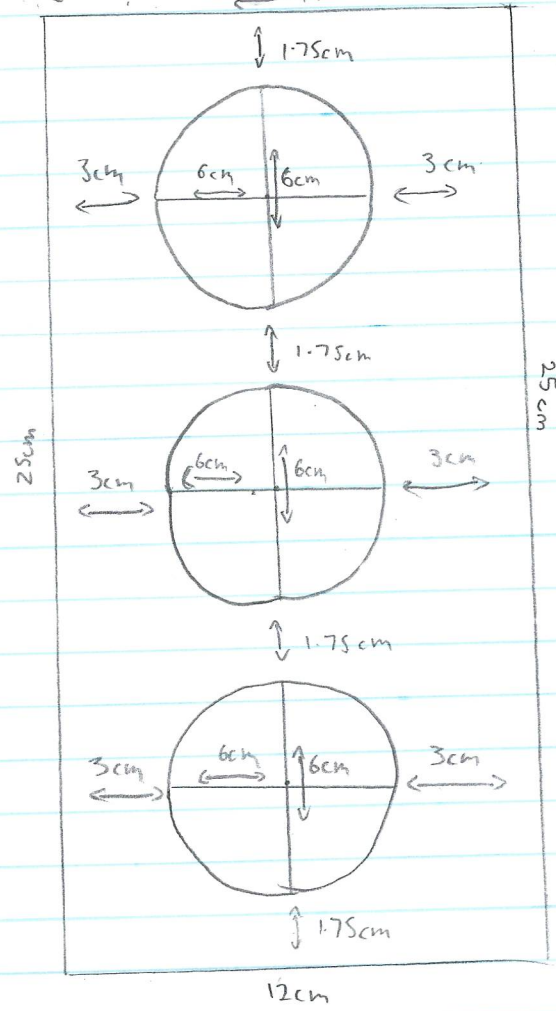 1.75cm
3cm
6cm
6cm
3cm
1.75cm
25cm
25cm
3cm
6cm
6cm
3cm
1.75cm
3cm
6cm
6cm
3cm
1.75cm
12cm